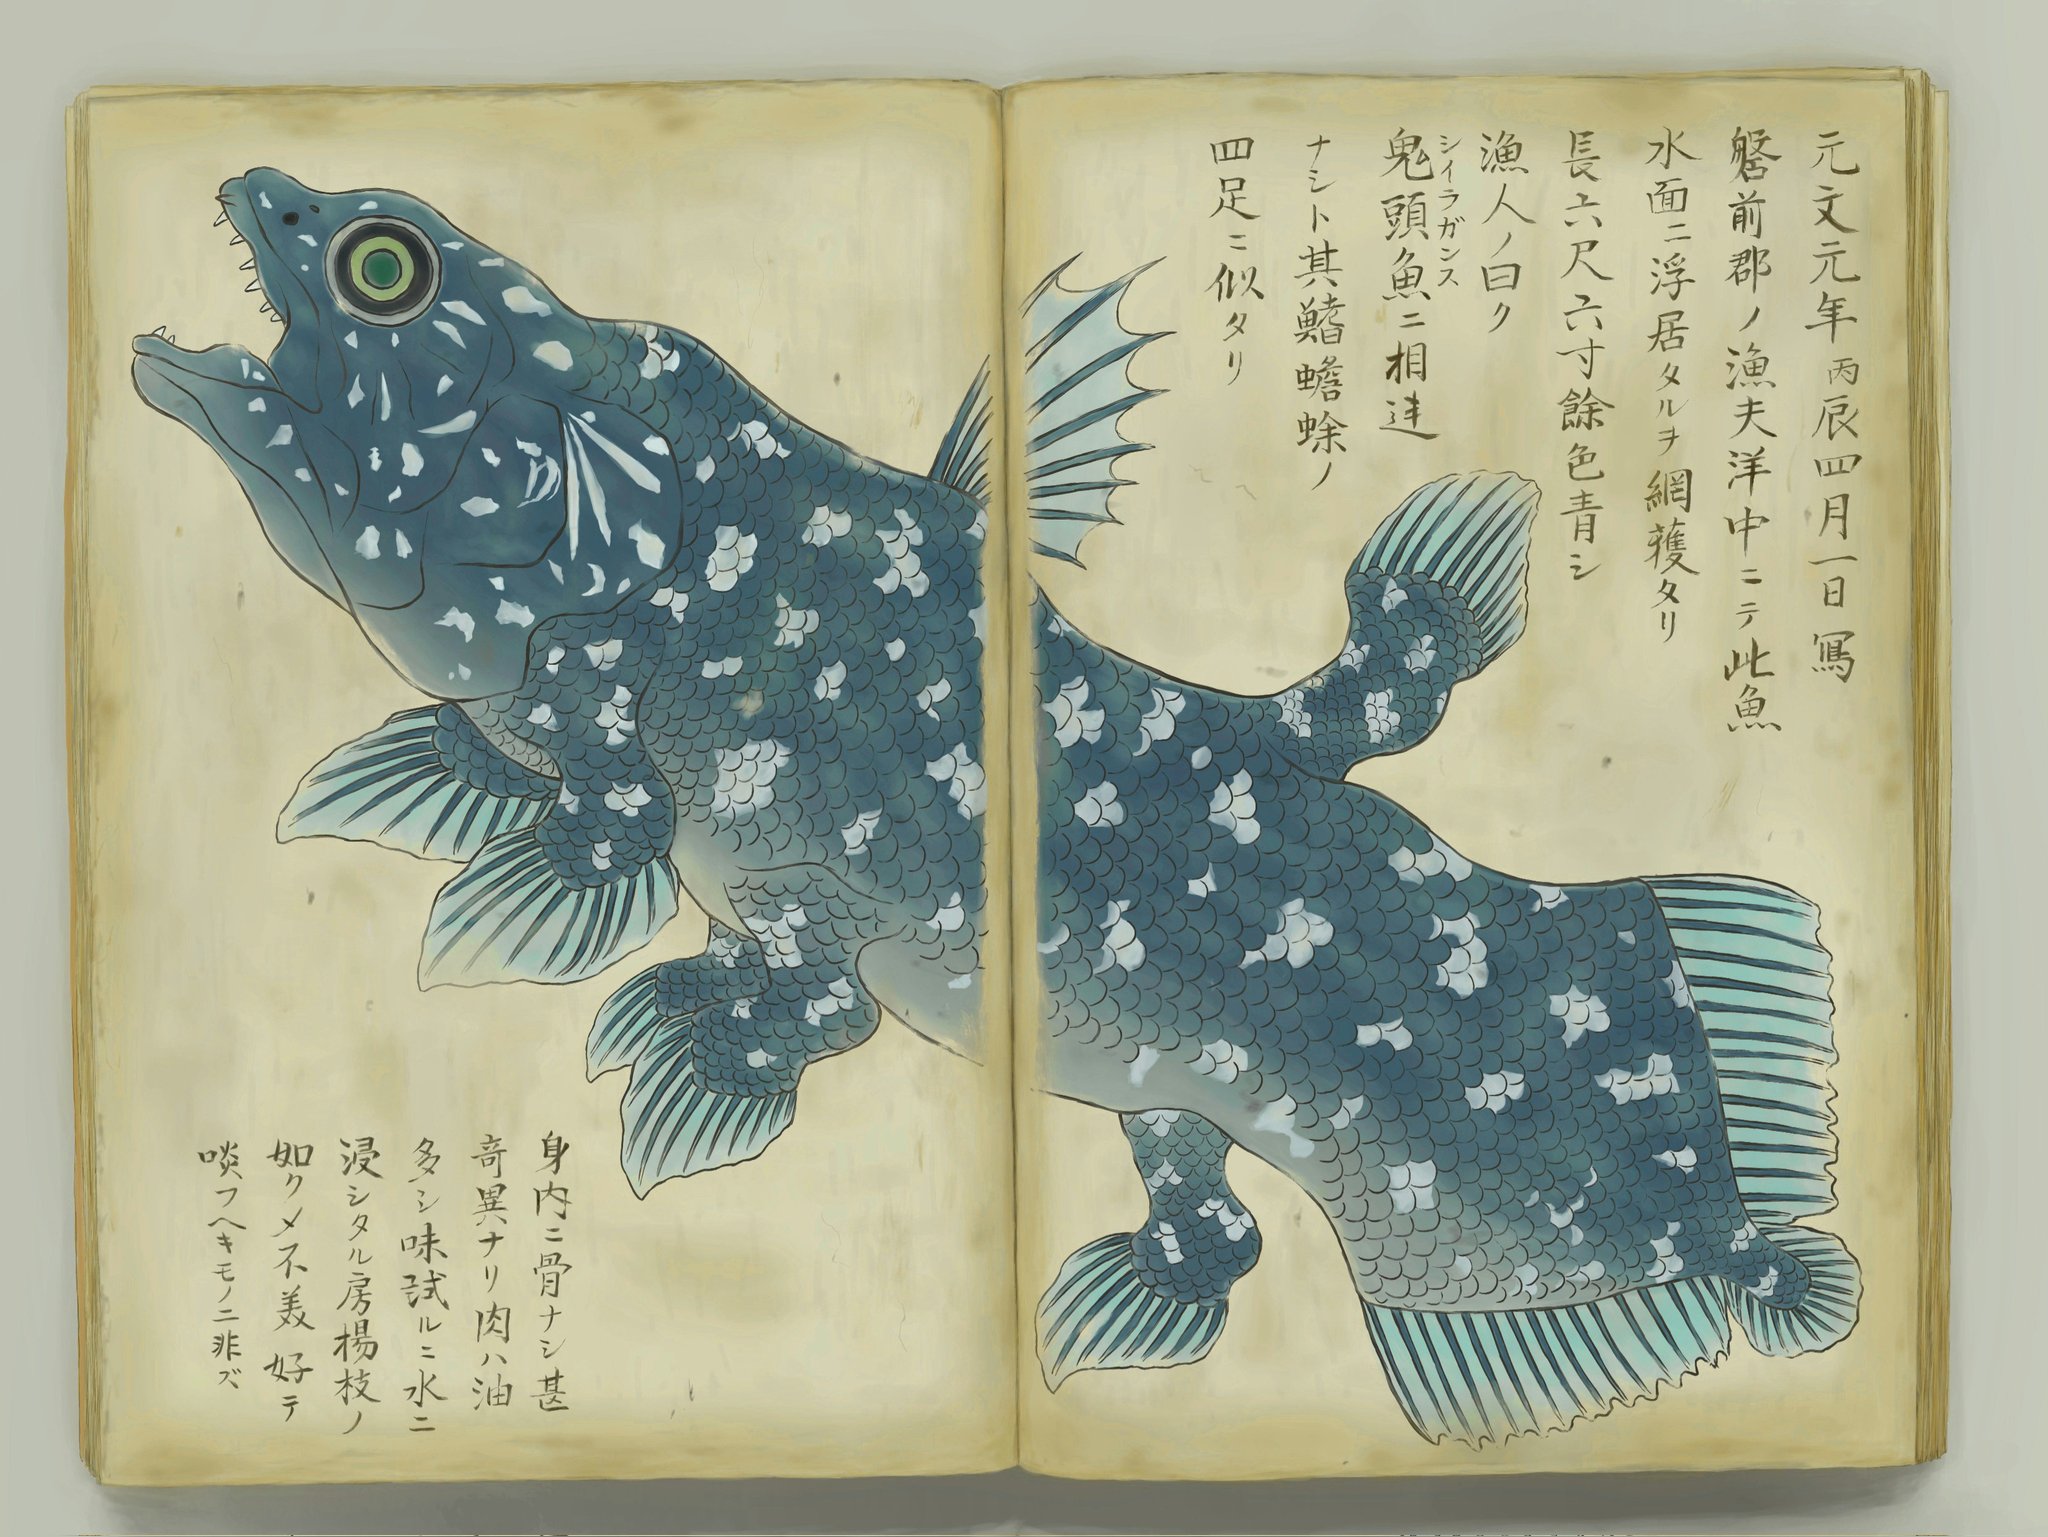 元文元年丙辰四月一日寫
磐前郡ノ漁夫洋中ニテ此魚
水面ニ浮居タルヲ網獲タリ
長六尺六寸餘色青シ
漁人ノ曰ク
シイラガンス
鬼頭魚ニ相違
ナシト其鰭蟾蜍ノ
四足ニ似タリ
身内ニ骨ナシ甚
奇異ナリ肉ハ油
多シ味試ルニ水ニ
浸シタル房楊枝ノ
如クメ不美好テ
啖フヘキモノニ非ズ